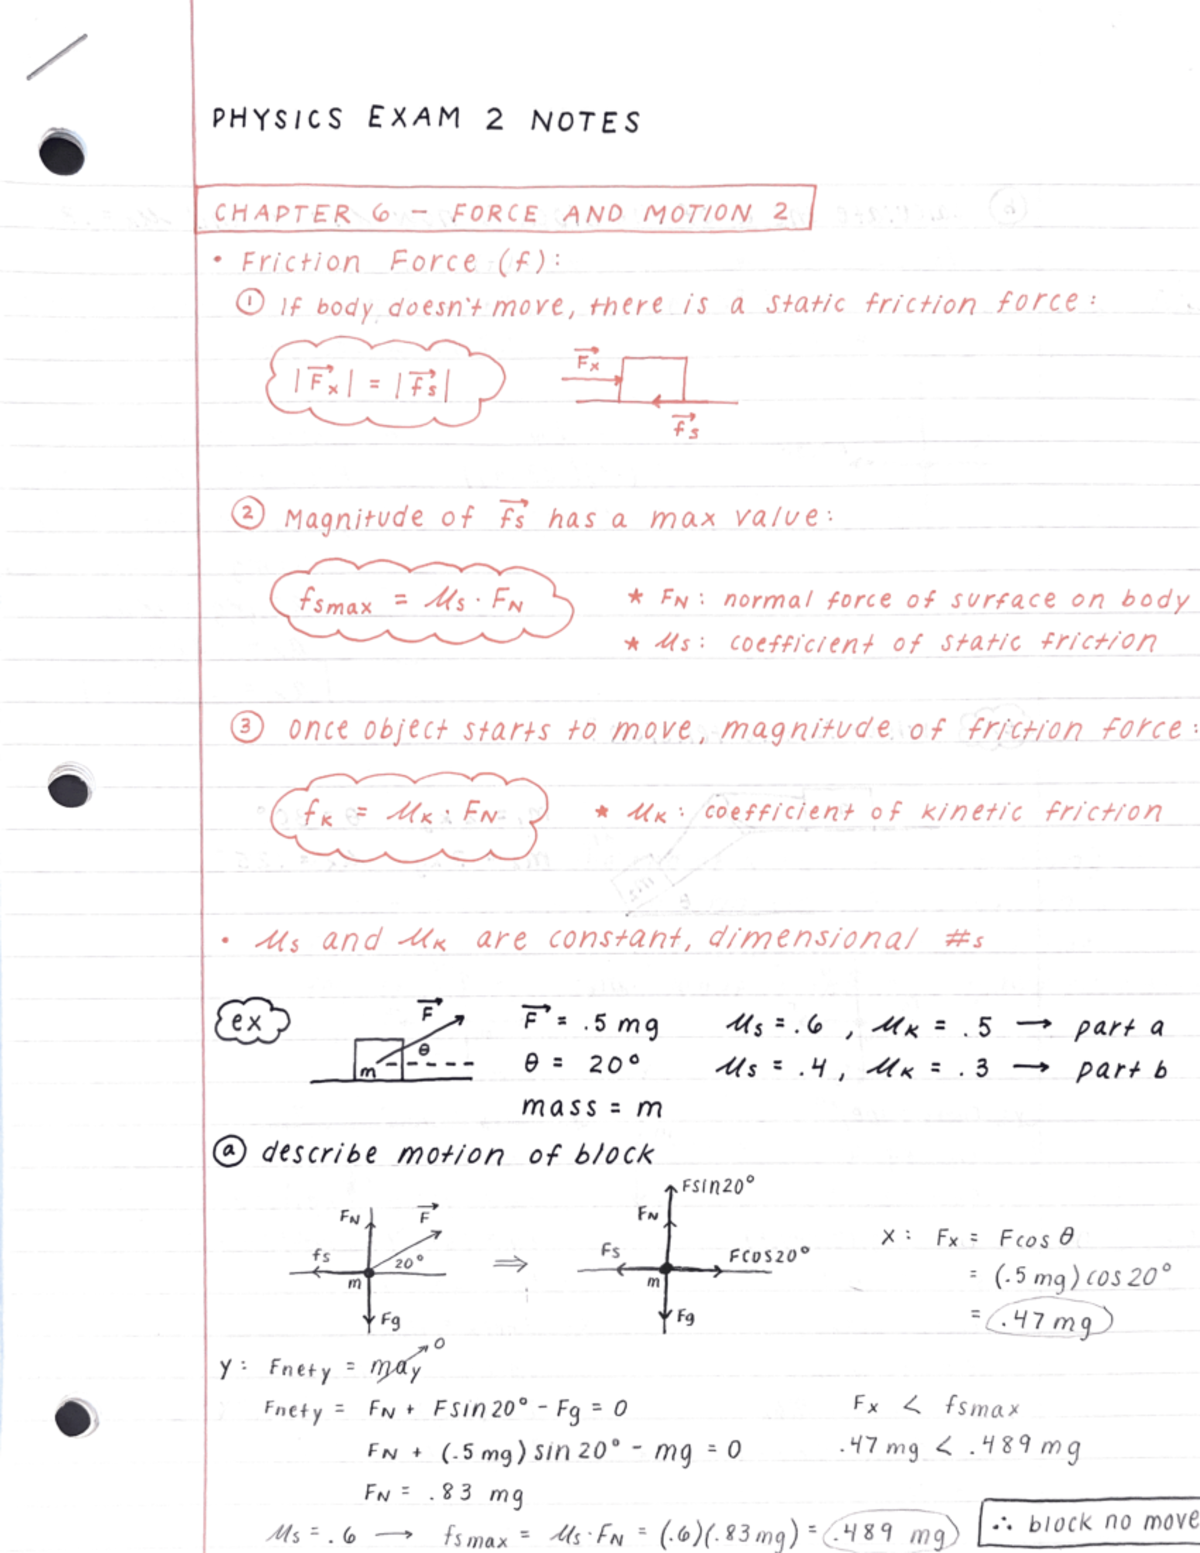 PHYSICS EXAM 2 NOTES
CHAPTER 6 – FORCE AND MOTION 2
• Friction Force (f):
① If body doesn't move, there is a static friction force:
|F⃗x| = |f⃗s|
F⃗x
f⃗s
② Magnitude of f⃗s has a max value:
fsmax = μs · FN
* FN: normal force of surface on body
* μs: coefficient of static friction
③ once object starts to move, magnitude of friction force:
fK = μK · FN
* μK: coefficient of kinetic friction
• μs and μK are constant, dimensional #s
ex
F⃗
θ
m
F⃗ = .5 mg
μs = .6, μK = .5 → part a
θ = 20°
μs = .4, μK = .3 → part b
mass = m
ⓐ describe motion of block
FN
F⃗
fs
20°
m
Fg
⇒
Fsin20°
FN
Fs
Fcos20°
m
Fg
x: Fx = Fcos θ
= (.5 mg) cos 20°
= .47 mg
y: Fnety = may 0
Fnety = FN + Fsin 20° - Fg = 0
Fx < fsmax
FN + (.5 mg) sin 20° - mg = 0
.47 mg < .489 mg
FN = .83 mg
μs = .6 → fsmax = μs · FN = (.6)(.83 mg) = .489 mg
∴ block no move